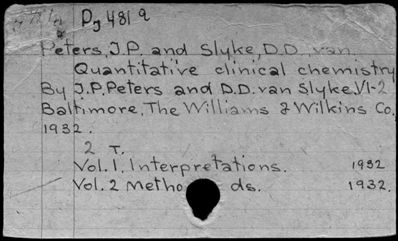 Pg 481 a
Peters, J.P. and Slyke, D.D. van
Quantitative clinical chemistry
By J.P. Peters and D.D. van Slyke. V1-2
Baltimore, The Williams & Wilkins Co.
1932.
2 T.
Vol. 1. Interpretations. 1932
Vol. 2 Metho ds. 1932.